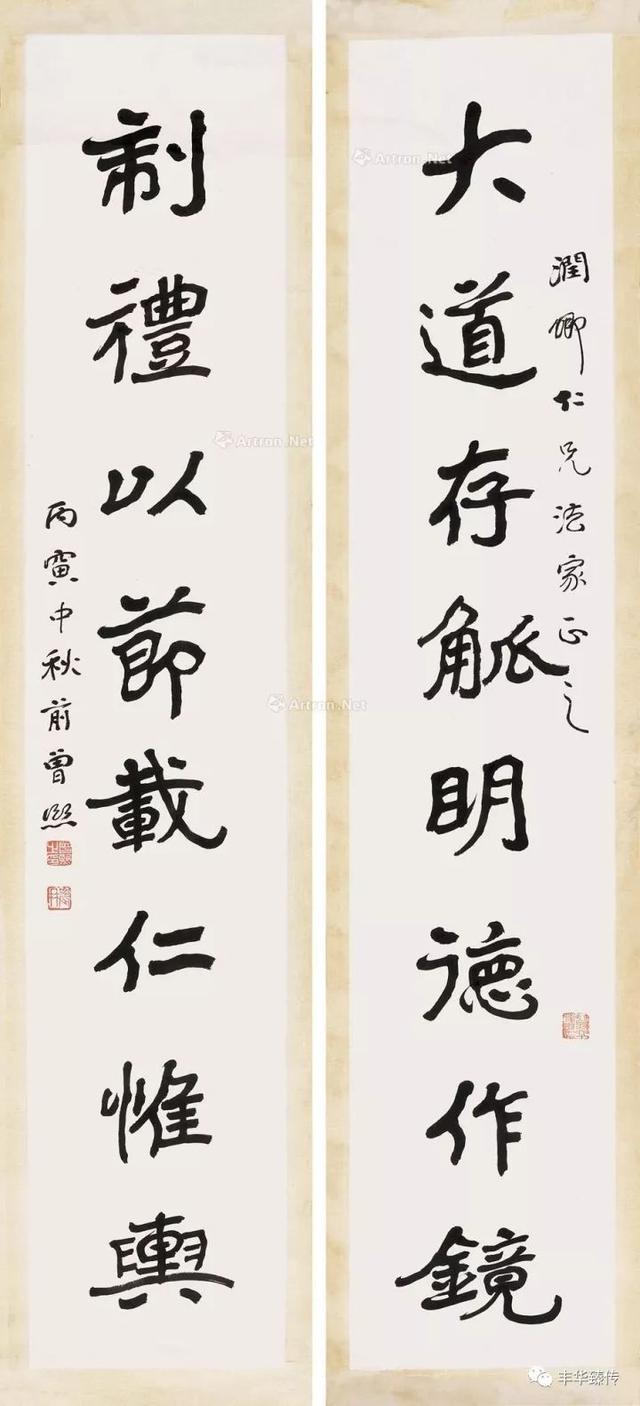 大道存觚明德作鏡
潤卿仁兄法家正之
制禮以節載仁惟輿
丙寅中秋前曾熙
Artron.Net
Artron.Net
Artron.Net
丰华臻传